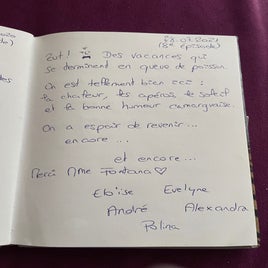 28.07.2021
(8e épisode)
Zut ! Des vacances qui
se terminent en queue de poisson.
On est tellement bien ici :
la chaleur, les apéros, le soleil
et la bonne humeur camarguaise.
On a espoir de revenir...
encore ...
et encore...
Merci Mme Fontana ♡
Eloïse Evelyne
André Alexandra
Polina